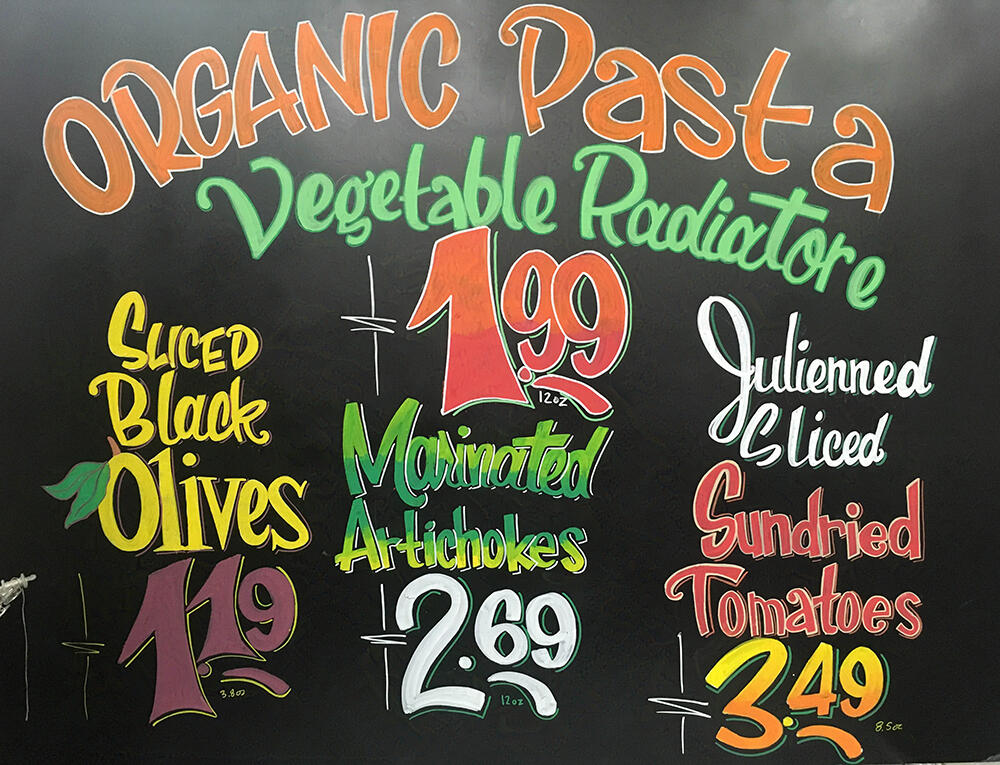 ORGANIC Pasta
Vegetable Radiatore
1.99
12oz
SLICED
Black
Olives
1.19
3.8oz
Marinated
Artichokes
2.69
12oz
Julienned
Sliced
Sundried
Tomatoes
3.49
8.5oz